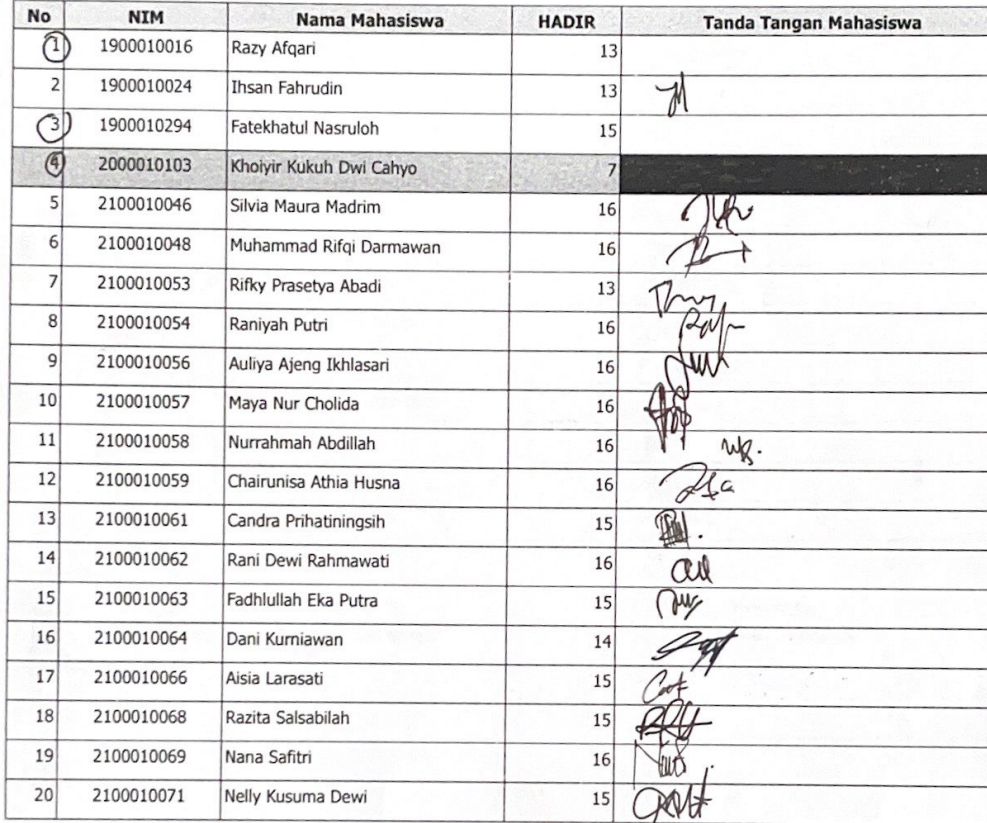 No NIM Nama Mahasiswa HADIR Tanda Tangan Mahasiswa
1 1900010016 Razy Afqari 13
2 1900010024 Ihsan Fahrudin 13
3 1900010294 Fatekhatul Nasruloh 15
4 2000010103 Khoiyir Kukuh Dwi Cahyo 7
5 2100010046 Silvia Maura Madrim 16
6 2100010048 Muhammad Rifqi Darmawan 16
7 2100010053 Rifky Prasetya Abadi 13
8 2100010054 Raniyah Putri 16
9 2100010056 Auliya Ajeng Ikhlasari 16
10 2100010057 Maya Nur Cholida 16
11 2100010058 Nurrahmah Abdillah 16
12 2100010059 Chairunisa Athia Husna 16
13 2100010061 Candra Prihatiningsih 15
14 2100010062 Rani Dewi Rahmawati 16
15 2100010063 Fadhlullah Eka Putra 15
16 2100010064 Dani Kurniawan 14
17 2100010066 Aisia Larasati 15
18 2100010068 Razita Salsabilah 15
19 2100010069 Nana Safitri 16
20 2100010071 Nelly Kusuma Dewi 15